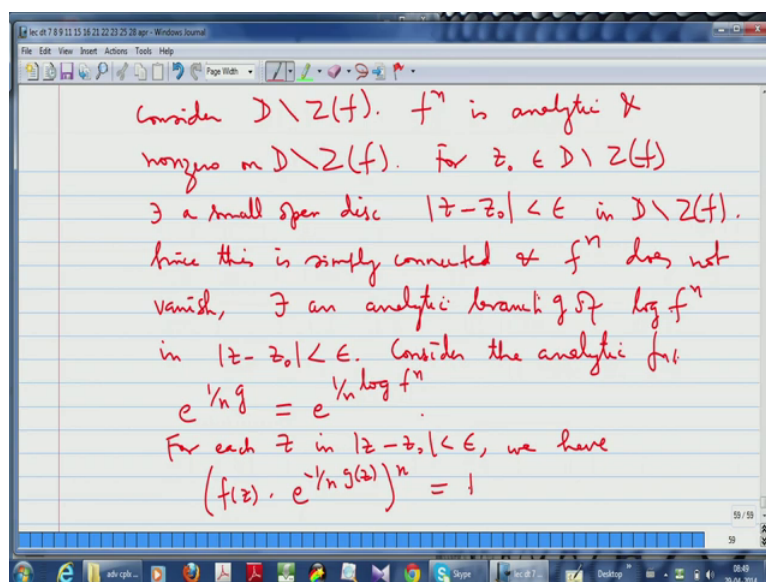 lec dt 7 8 9 11 15 16 21 22 23 25 28 apr - Windows Journal
File Edit View Insert Actions Tools Help
Page Width
Consider D \ Z(f). fⁿ is analytic &
nonzero on D \ Z(f). For z₀ ∈ D \ Z(f)
∃ a small open disc |z - z₀| < ε in D \ Z(f).
Since this is simply connected & fⁿ does not
vanish, ∃ an analytic branch g of log fⁿ
in |z - z₀| < ε. Consider the analytic fn.
e^{1/n g} = e^{1/n log fⁿ}.
For each z in |z - z₀| < ε, we have
(f(z) . e^{-1/n g(z)})ⁿ = 1
59 / 59
59
adv cplx ...
Skype
lec dt 7 ...
Desktop
08:49